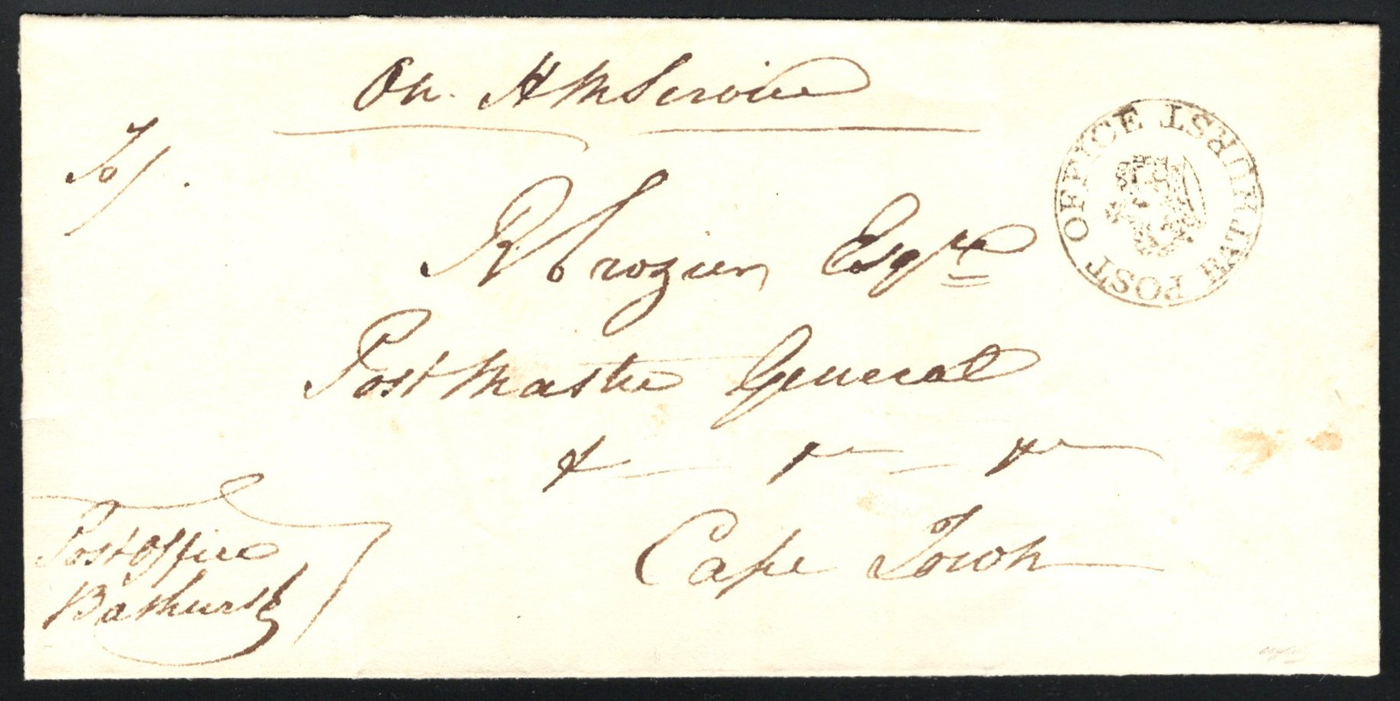 On. H M Service
To/.
R Crozier Esqre
Post Master General
&c &c &c
Cape Town
Post Office
Bathurst
POST OFFICE BATHURST